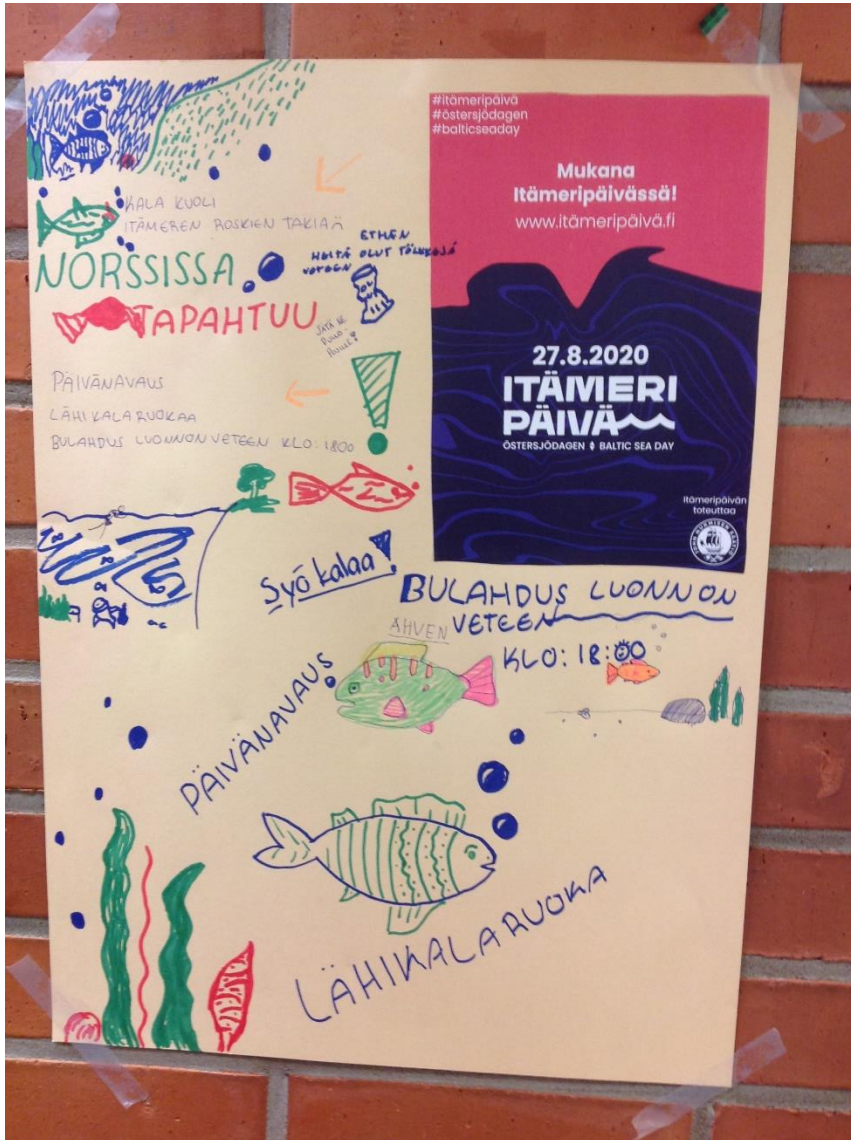 KALA KUOLI
ITÄMEREN ROSKIEN TAKIA
NORSSISSA
TAPAHTUU
ETHEN
HEITÄ OLUT TÖLKKEJÄ
VETEEN
JÄTÄ SE
PULLO-
PÄIVÄNAVAUS
LÄHIKALARUOKAA
BULAHDUS LUONNON VETEEN KLO: 1800
Syö kalaa!
#itämeripäivä
#östersjödagen
#balticseaday
Mukana
Itämeripäivässä!
www.itämeripäivä.fi
27.8.2020
ITÄMERI
PÄIVÄ
ÖSTERSJÖDAGEN BALTIC SEA DAY
Itämeripäivän
toteuttaa
BULAHDUS LUONNON
VETEEN
KLO: 18:00
AHVEN
PÄIVÄNAVAUS
LÄHIKALARUOKA